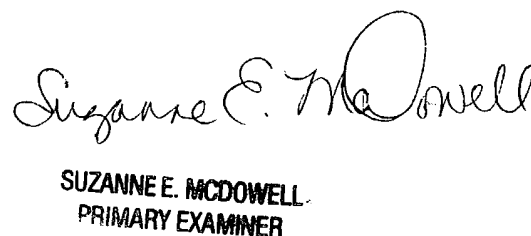 Suzanne E. McDowell
SUZANNE E. MCDOWELL
PRIMARY EXAMINER